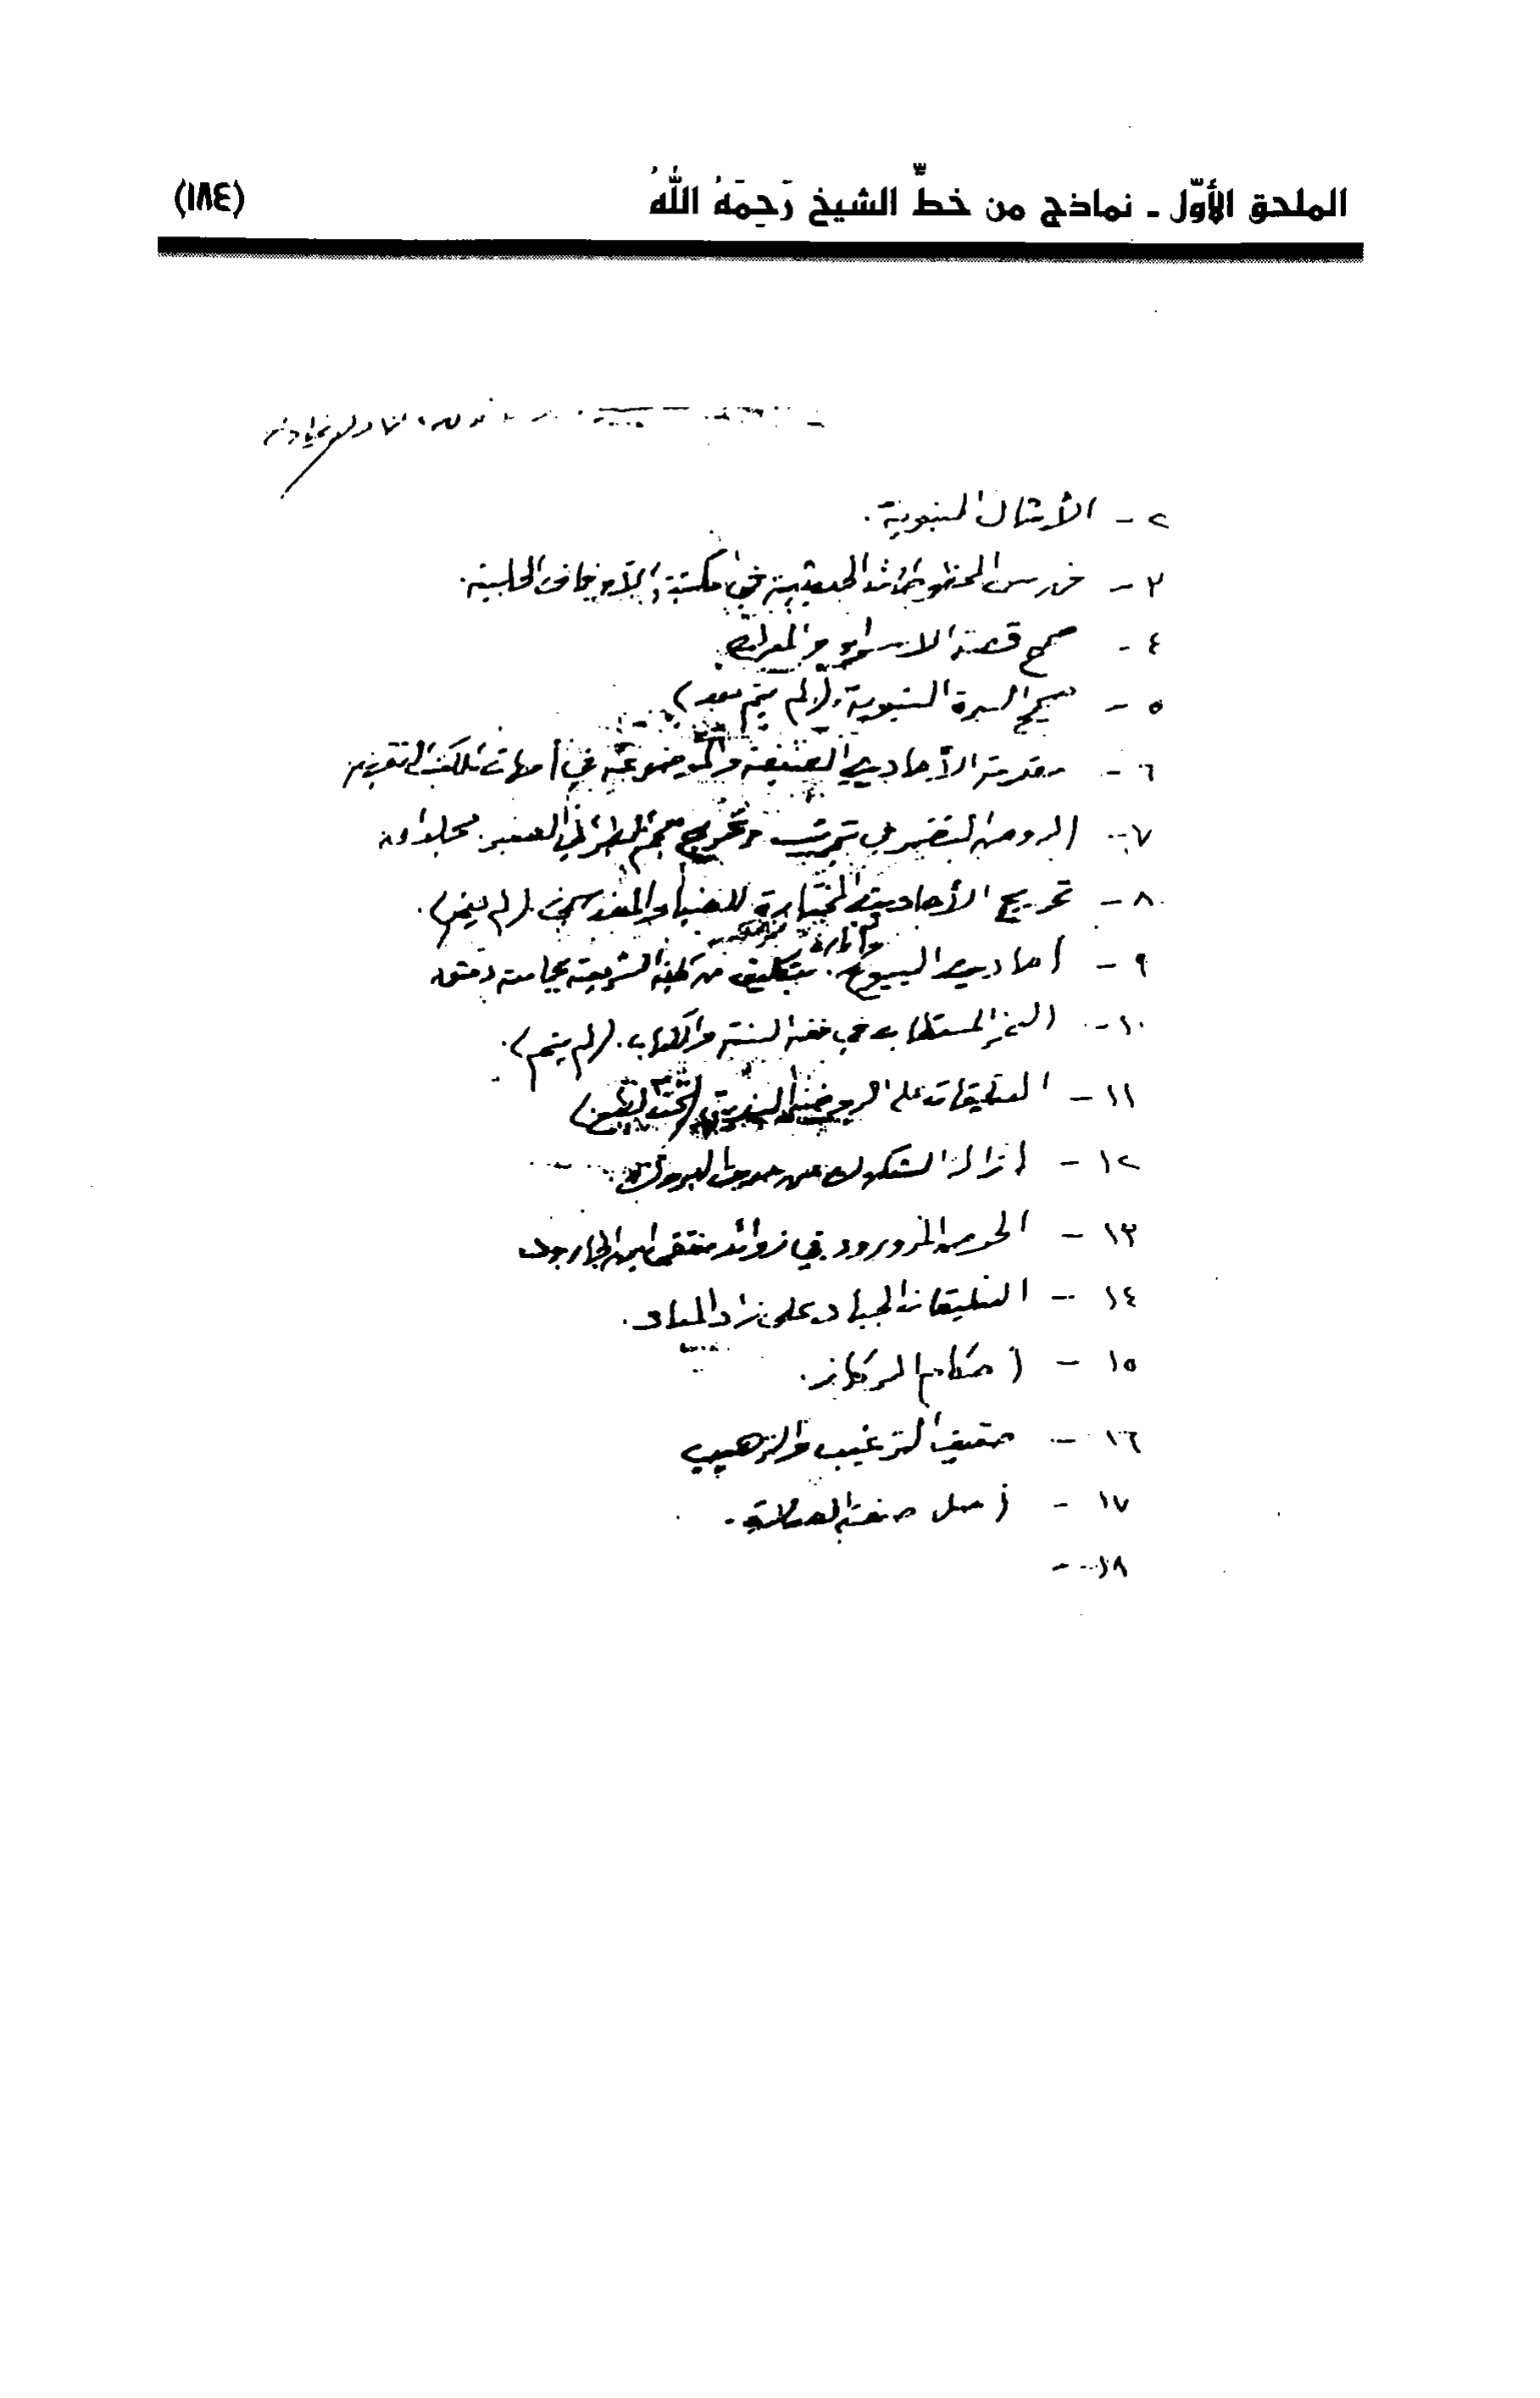 الملحق الأوّل - نماذج من خطِّ الشيخ رَحِمَهُ اللهُ (١٨٤)
٢ - الأمثال النبوية.
٣ - فهرس المخطوطات الحديثية في مكتبة الأوقاف الحلبية.
٤ - صحيح قصة الاسراء والمعراج.
٥ - صحيح السيرة النبوية. (لم يتم بعد)
٦ - مقدمة الأحاديث الضعيفة والموضوعة في أمهات الكتب الفقهية
٧ - الروض النضير في ترتيب وتخريج معجم الطبراني الصغير. مجلدان
٨ - تخريج الأحاديث المختارة للضياء المقدسي. (لم يتم).
٩ - أحاديث البيوع وآثاره. بتكليف من كلية الشريعة بجامعة دمشق
١٠ - الثمر المستطاب في فقه السنة والكتاب. (لم يتم).
١١ - التعليقات على الروضة الندية (تحت الطبع)
١٢ - إزالة الشكوك عن حديث البروك.
١٣ - الحوض المورود في زوائد منتقى ابن الجارود
١٤ - التعليقات الجياد على زاد المعاد.
١٥ - أحكام الركاز.
١٦ - ضعيف الترغيب والترهيب
١٧ - أصل صفة الصلاة.
١٨ -